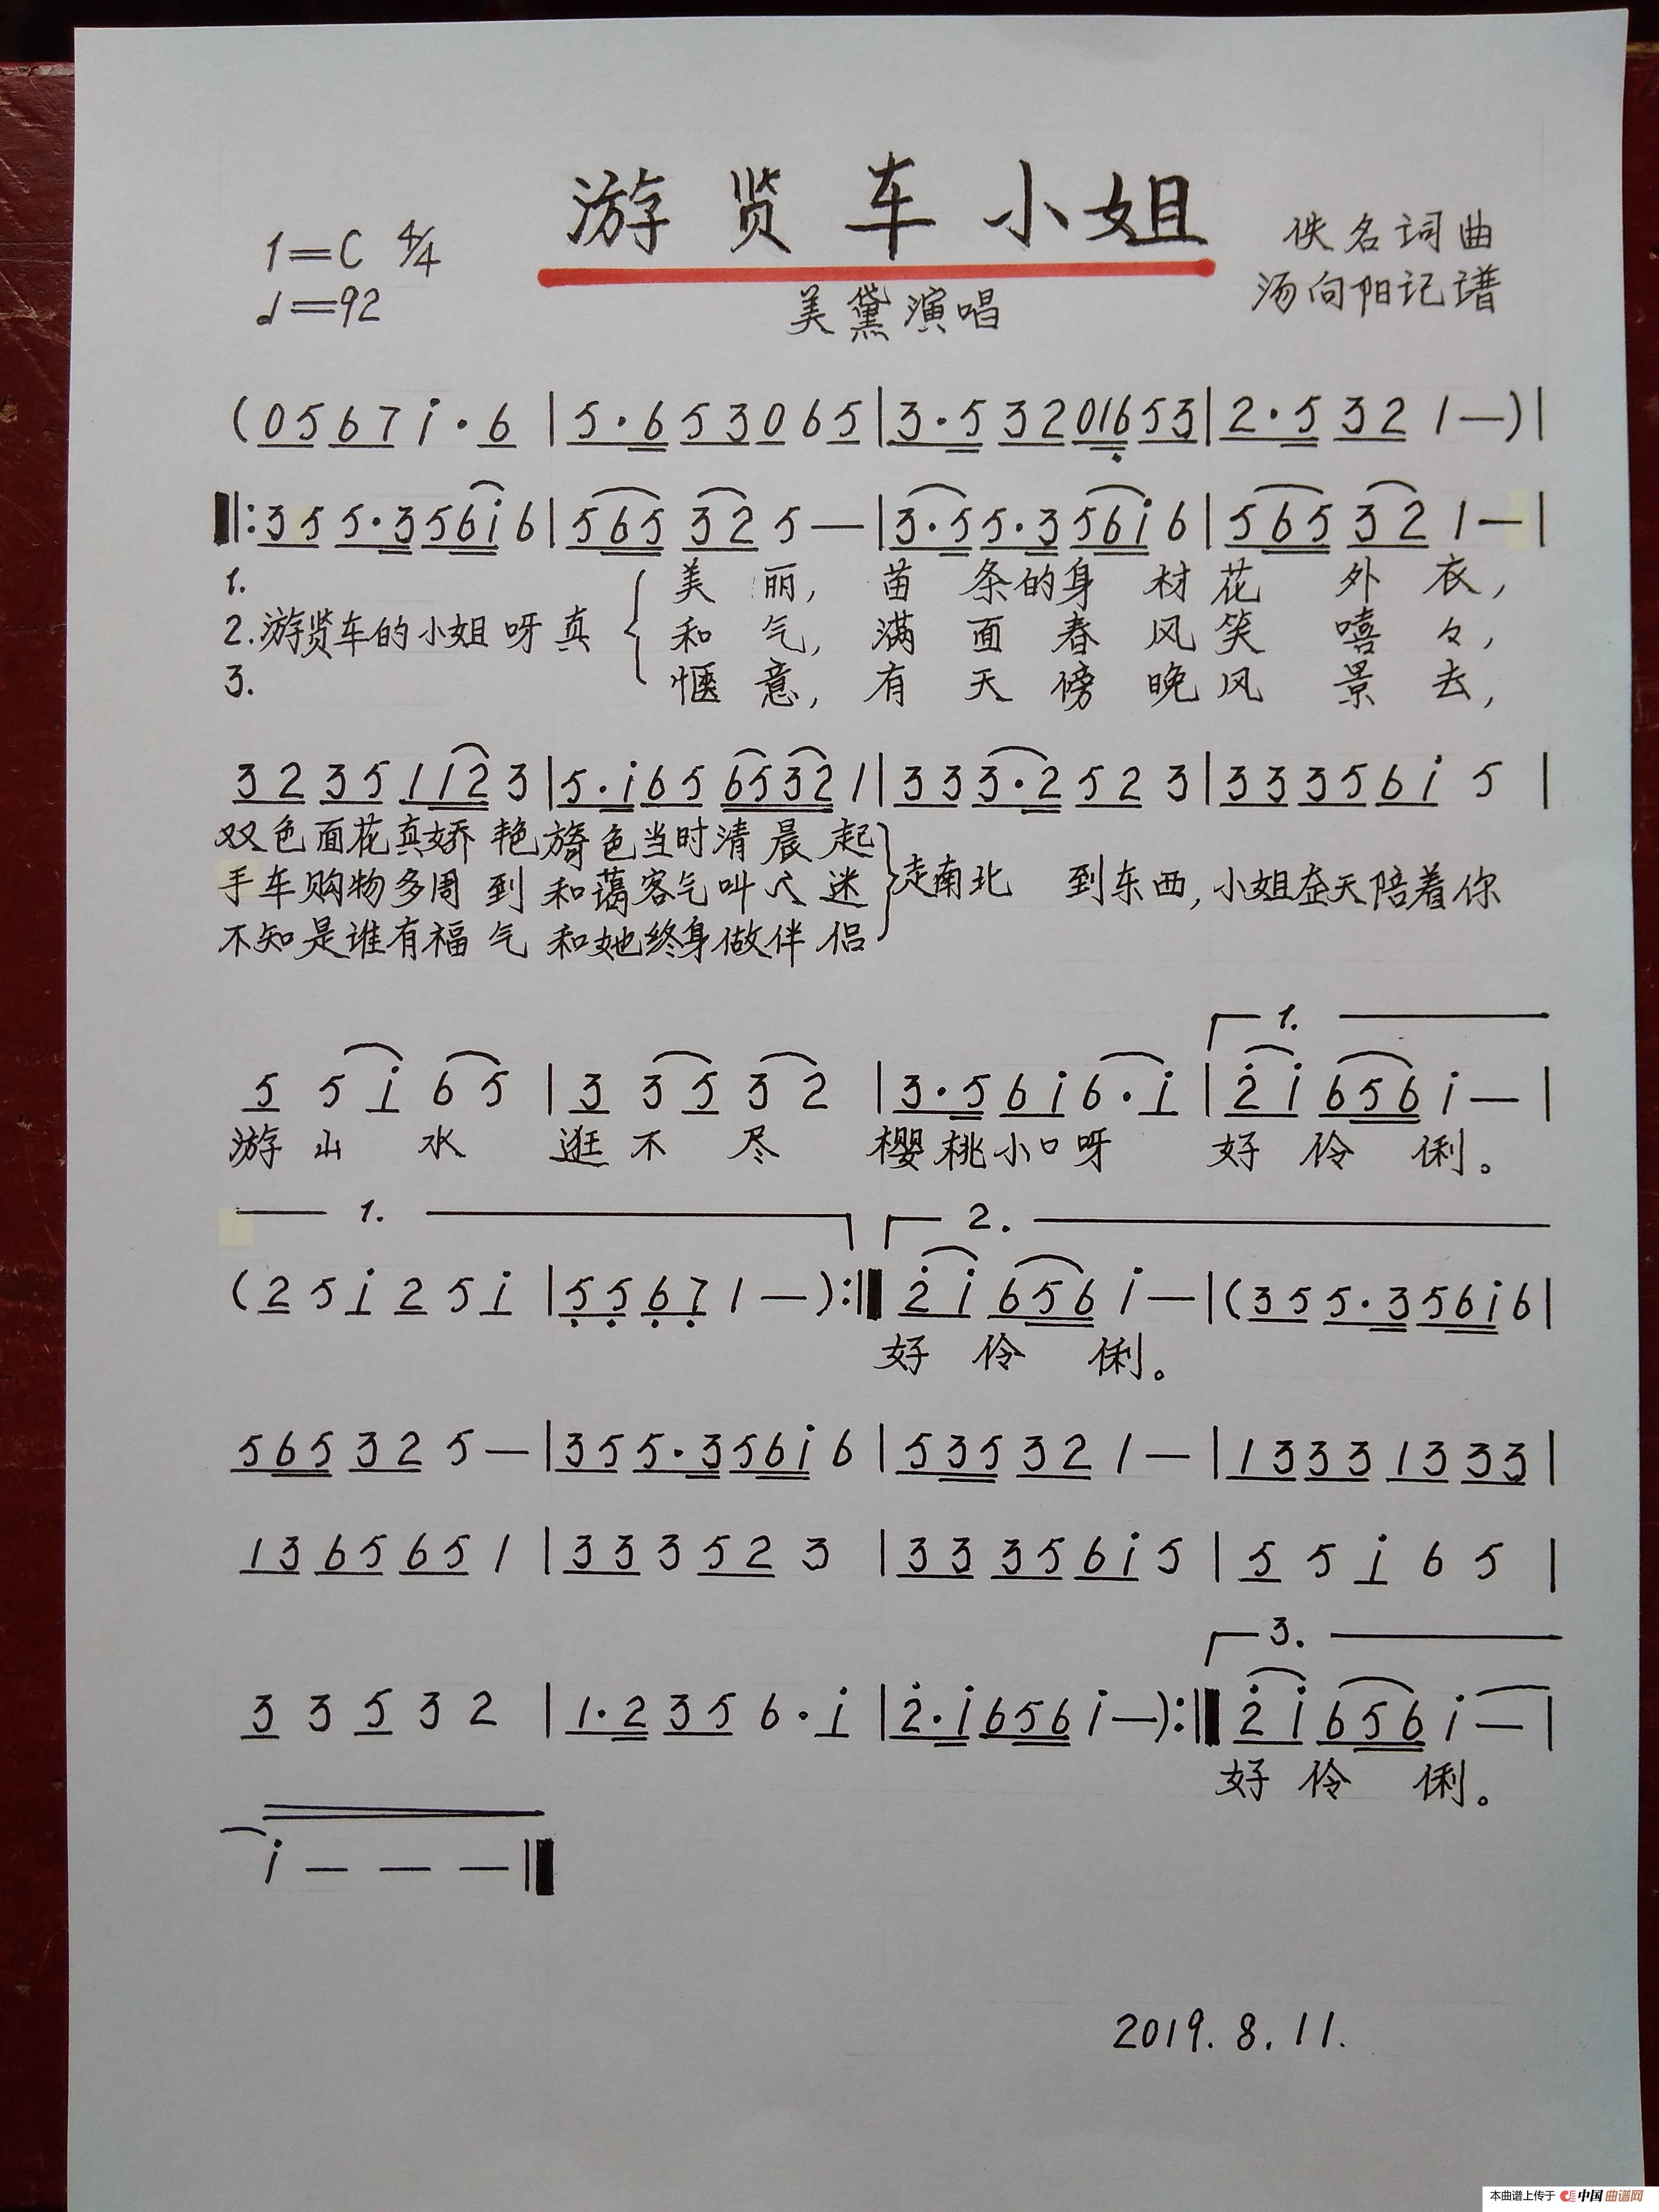 游贤车小姐
1=C 4/4
♩=92
佚名词曲
汤向阳记谱
美黛演唱
(0 5 6 7 i · 6 | 5 · 6 5 3 0 6 5 | 3 · 5 3 2 0 1 6 5 3 | 2 · 5 3 2 1 — ) |
‖: 3 5 5 · 3 5 6 i 6 | 5 6 5 3 2 5 — | 3 · 5 5 · 3 5 6 i 6 | 5 6 5 3 2 1 — |
1. 美丽, 苗条的身材花外衣,
2. 游贤车的小姐呀真 和气, 满面春风笑嘻々,
3. 惬意, 有天傍晚风景去,
3 2 3 5 1 1 2 3 | 5 · i 6 5 6 5 3 2 1 | 3 3 3 · 2 5 2 3 | 3 3 3 5 6 i 5 |
双色面花真娇艳 色当时清晨起
手车购物多周到 和蔼客气叫 迷 走南北 到东西, 小姐 天陪着你
不知是谁有福气 和她终身做伴侣
5 5 i 6 5 | 3 3 5 3 2 | 3 · 5 6 i 6 · i | 1. 2 i 6 5 6 i — |
游山水 逛不尽 樱桃小口呀 好伶俐。
1. 2.
(2 5 i 2 5 i | 5 5 6 7 1 — ) :‖ 2 i 6 5 6 i — | (3 5 5 · 3 5 6 i 6 |
好伶俐。
5 6 5 3 2 5 — | 3 5 5 · 3 5 6 i 6 | 5 3 5 3 2 1 — | 1 3 3 3 1 3 3 3 |
1 3 6 5 6 5 1 | 3 3 3 5 2 3 | 3 3 3 5 6 i 5 | 5 5 i 6 5 |
3.
3 3 5 3 2 | 1 · 2 3 5 6 · i | 2 · i 6 5 6 i — ) :‖ 2 i 6 5 6 i — |
好伶俐。
i — — — ‖
2019.8.11.
本曲谱上传于 中国曲谱网